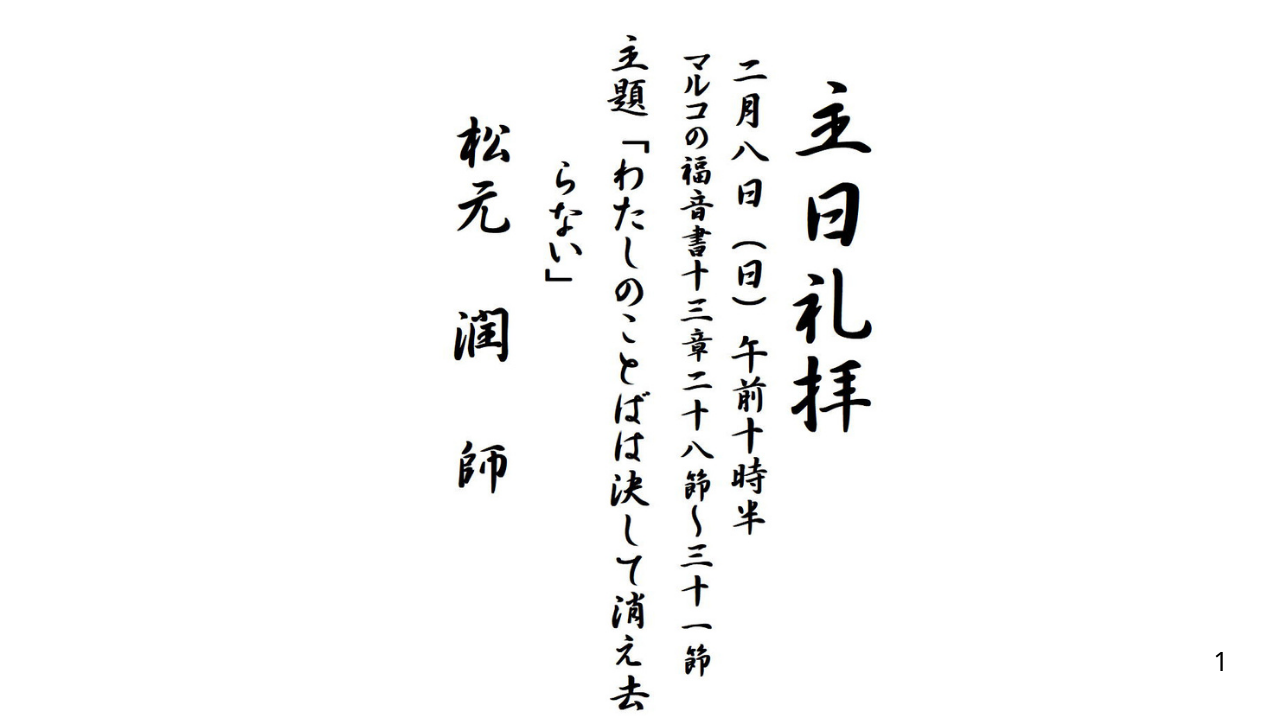 主日礼拝
二月八日（日）午前十時半
マルコの福音書十三章二十八節～三十一節
主題「わたしのことばは決して消え去
らない」
松元　潤　師
1